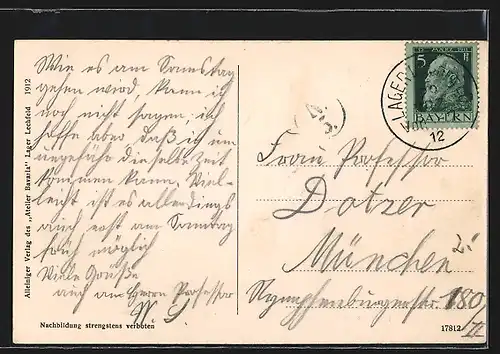 Wie es am Samstag
gehen wird, kann ich
noch nicht sagen; ich
hoffe aber, daß ich um
ungefähr dieselbe Zeit
kommen kann. Viel-
leicht ist es allerdings
auch erst am Sonntag
früh möglich
Viele Grüße
auch an Herrn Professor
W.
Alleiniger Verlag des „Atelier Bavaria" Lager Lechfeld 1912
Nachbildung strengstens verboten
5
BAYERN
LAGER
12
Frau Professor
Dotzer
München
Nymphenburgerstr. 180/II
17812